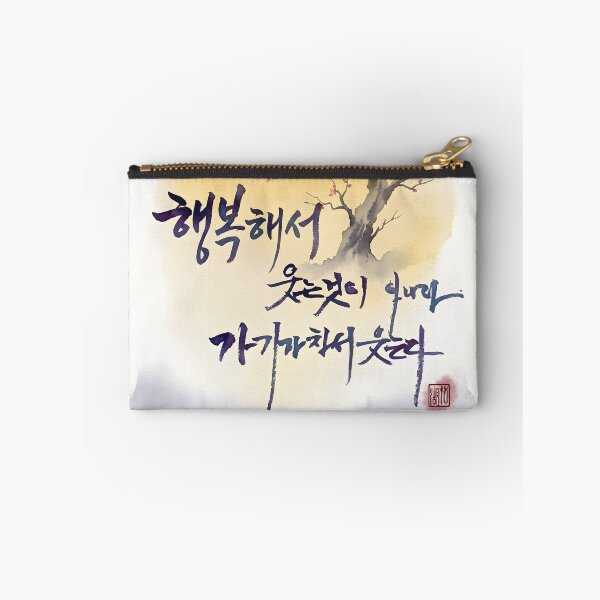 행복해서
웃는것이 아니라
가기가차서 웃는다